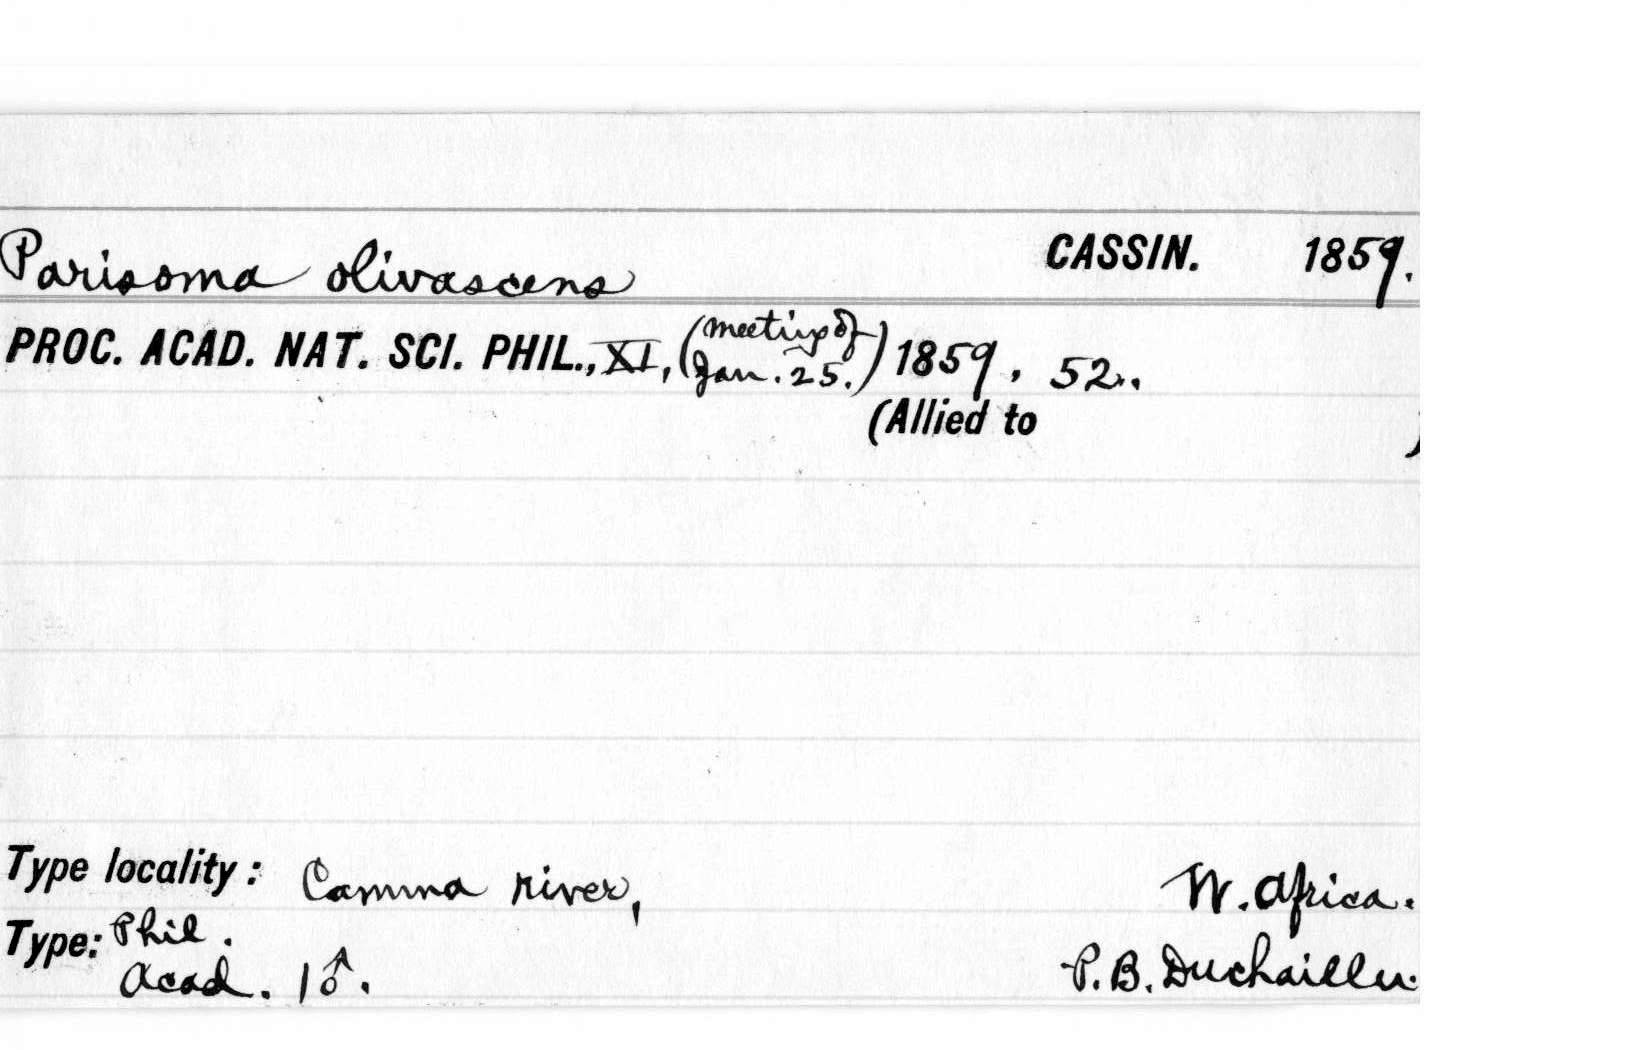 Parisoma olivascens CASSIN. 1859.
PROC. ACAD. NAT. SCI. PHIL., XI, (meeting of Jan. 25.) 1859, 52.
(Allied to )
Type locality: Camma river, W. Africa.
Type: Phil. Acad. 1♂. P. B. Duchaillu.